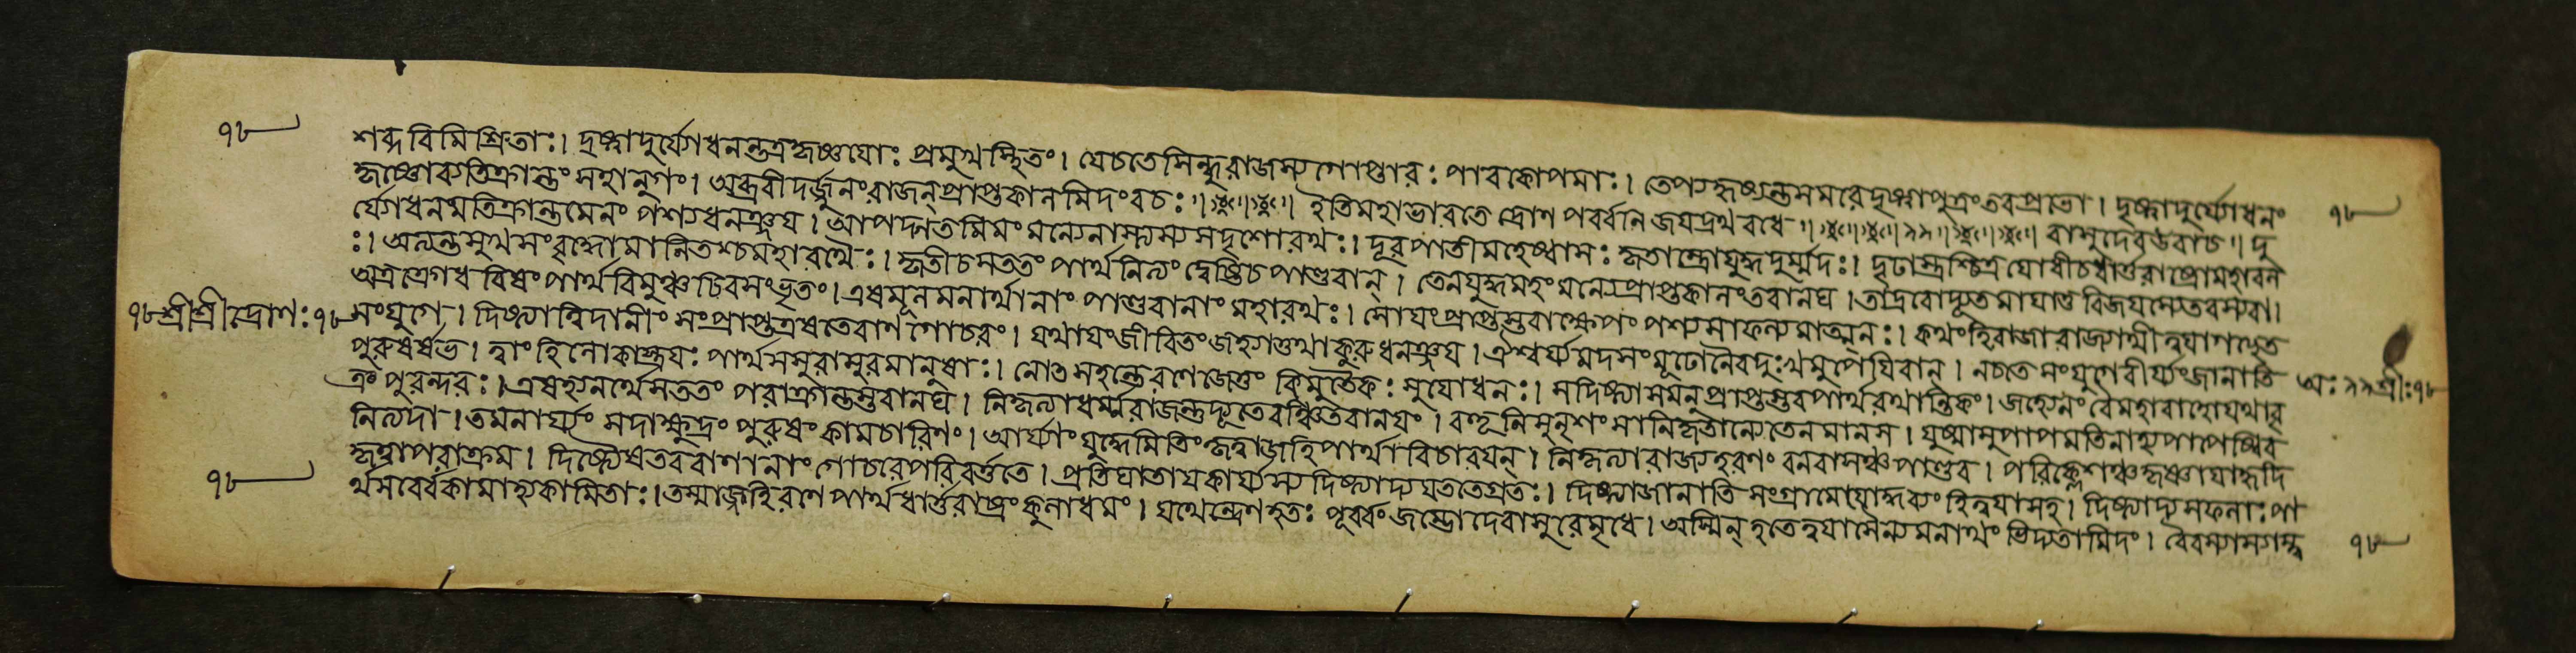 ৭৮ শব্দবিমিশ্রিতাঃ। দৃষ্ট্বাদুর্যোধনন্তত্রকৃষ্ণযোঃ প্রমুখস্থিতং। যেচতেসিন্ধুরাজস্যগোপ্তারঃ পাবকোপমাঃ। তেপ্যহৃষ্যন্তসমরেদৃষ্ট্বাপুত্রংতবপ্রভো। দৃষ্ট্বাদুর্যোধনং ৭৮
কৃষ্ণোব্যতিক্রান্তং সহানুগং। অব্রবীদর্জ্জুনংরাজন্প্রাপ্তকালমিদংবচঃ॥ ইতিমহাভারতে দ্রোণ পর্বণি জযদ্রথবধে॥ বাসুদেবউবাচ॥ দু
র্যোধনমতিক্রান্তমেনং পশ্যধনঞ্জয। আপদ্গতমিমং মন্যেনাস্ত্যস্যসদৃশোরথঃ। দূরপাতীমহেষ্বাসঃ কৃতাস্ত্রোযুদ্ধদুর্ম্মদঃ। দৃঢাস্ত্রশ্চিত্রযোধীচধার্ত্তরাষ্ট্রোমহাবল
ঃ। অত্যন্তসুখসংবৃদ্ধোমানিতশ্চমহারথৈঃ। কৃতীচসততং পার্থনিত্যংদ্বেষ্টিচপাণ্ডবান্। তেনযুদ্ধমহংমন্যেপ্রাপ্তকালংতবানঘ।
অত্রক্রোধবিষংপার্থবিমুঞ্চচিরসংভৃতং। এষমূলমনর্থানাং পাণ্ডবানাং মহারথঃ। সোযংপ্রাপ্তস্তবাক্ষেপং পশ্যসাফল্যমাত্মনঃ। কথংহিরাজারাজ্যার্থীত্বযাগচ্ছেত
৭৮ শ্রীশ্রীদ্রোণঃ ৭৮ সংযুগে। দিষ্ট্যাত্বিদানীং সংপ্রাপ্তএষতেবাণগোচরং। যথাযংজীবিতংজহ্যাত্তথাকুরুধনঞ্জয। ঐশ্বর্য্যমদসংমূঢোনৈবদুঃখমুপেযিবান্। নচতে সংযুগেবীর্য্যংজানাতি অঃ শ্রীঃ ৭৮
পুরুষর্ষভ। ত্বাং হিলোকাস্ত্রযঃ পার্থসসুরাসুরমানুষাঃ। নোত্সহন্তেরণেজেতুং কিমুতৈকঃ সুযোধনঃ। সদিষ্ট্যাসমনুপ্রাপ্তস্তবপার্থরথান্তিকং। জহ্যেনং বৈমহাবাহোযথাবৃ
ত্রং পুরন্দরঃ। এষহ্যনর্থেসততং পরাক্রান্তস্তবানঘ। নিকৃত্যাধর্ম্মরাজন্তুদ্যূতেবঞ্চিতবানযং। বহূনিসুনৃশংসানিকৃতান্যেতেনমানদ। যুষ্মাসুপাপমতিনাহ্যপাপেষ্বেব
নিত্যদা। তমনার্য্যং সদাক্ষুদ্রং পুরুষংকামচারিণং। আর্য্যাংযুদ্ধেমতিংকৃত্বাজহিপার্থাবিচারযন্। নিকৃত্যারাজ্যহরণং বনবাসঞ্চপাণ্ডব। পরিক্লেশঞ্চকৃষ্ণাযাহৃদি
কৃত্বাপরাক্রম। দিষ্ট্যৈষতববাণানাং গোচরেপরিবর্ত্ততে। প্রতিঘাতাযকার্য্যস্যদিষ্ট্যাদ্যযততেগ্রতঃ। দিষ্ট্যাজানাতি সংগ্রামেযোদ্ধব্যং হিত্বযাসহ। দিষ্ট্যাদ্যসফলাঃপা
৭৮ র্থসর্বেকামাহ্যকামিতাঃ। তস্মাজ্জহিরণে পার্থধার্ত্তরাষ্ট্রং কুলাধমং। যথেন্দ্রেণহতঃ পূর্বংজম্ভোদেবাসুরেমৃধে। অস্মিন্হতেত্বযাসৈন্যমনাথং ভিদ্যতামিদং। বৈরস্যাস্যাস্ত্ব ৭৮